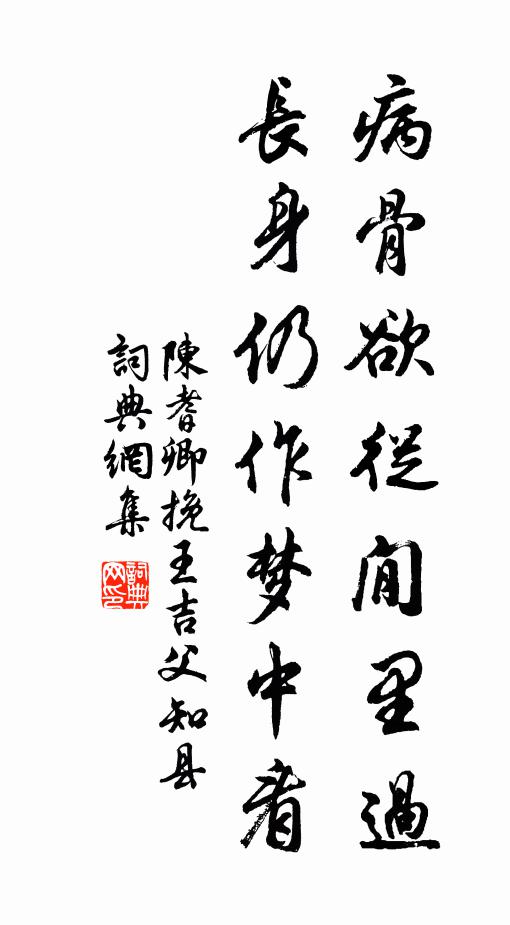 病骨欲從閒里過
長身仍作梦中看
陳耆卿挽王吉父知县
詞典網集
詞典网印